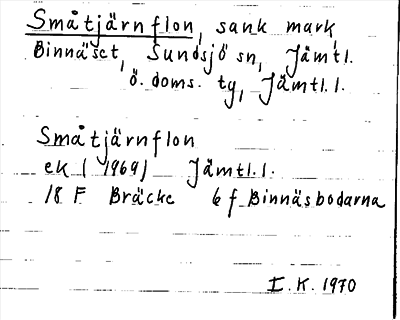 Småtjärnflon, sank mark
Binnäset, Sundsjö sn, Jämtl.
ö. doms. tg, Jämtl. l.
Småtjärnflon
ek (1969) Jämtl. l.
18 F Bräcke 6 f Binnäsbodarna
I. K. 1970